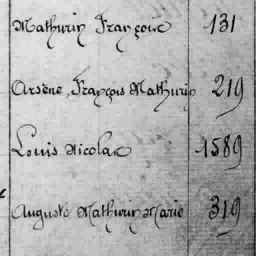 Mathurin Françoise 131
Arsène, François Mathurin 219
Louis Nicolas 1589
Auguste Mathurin Marie 319